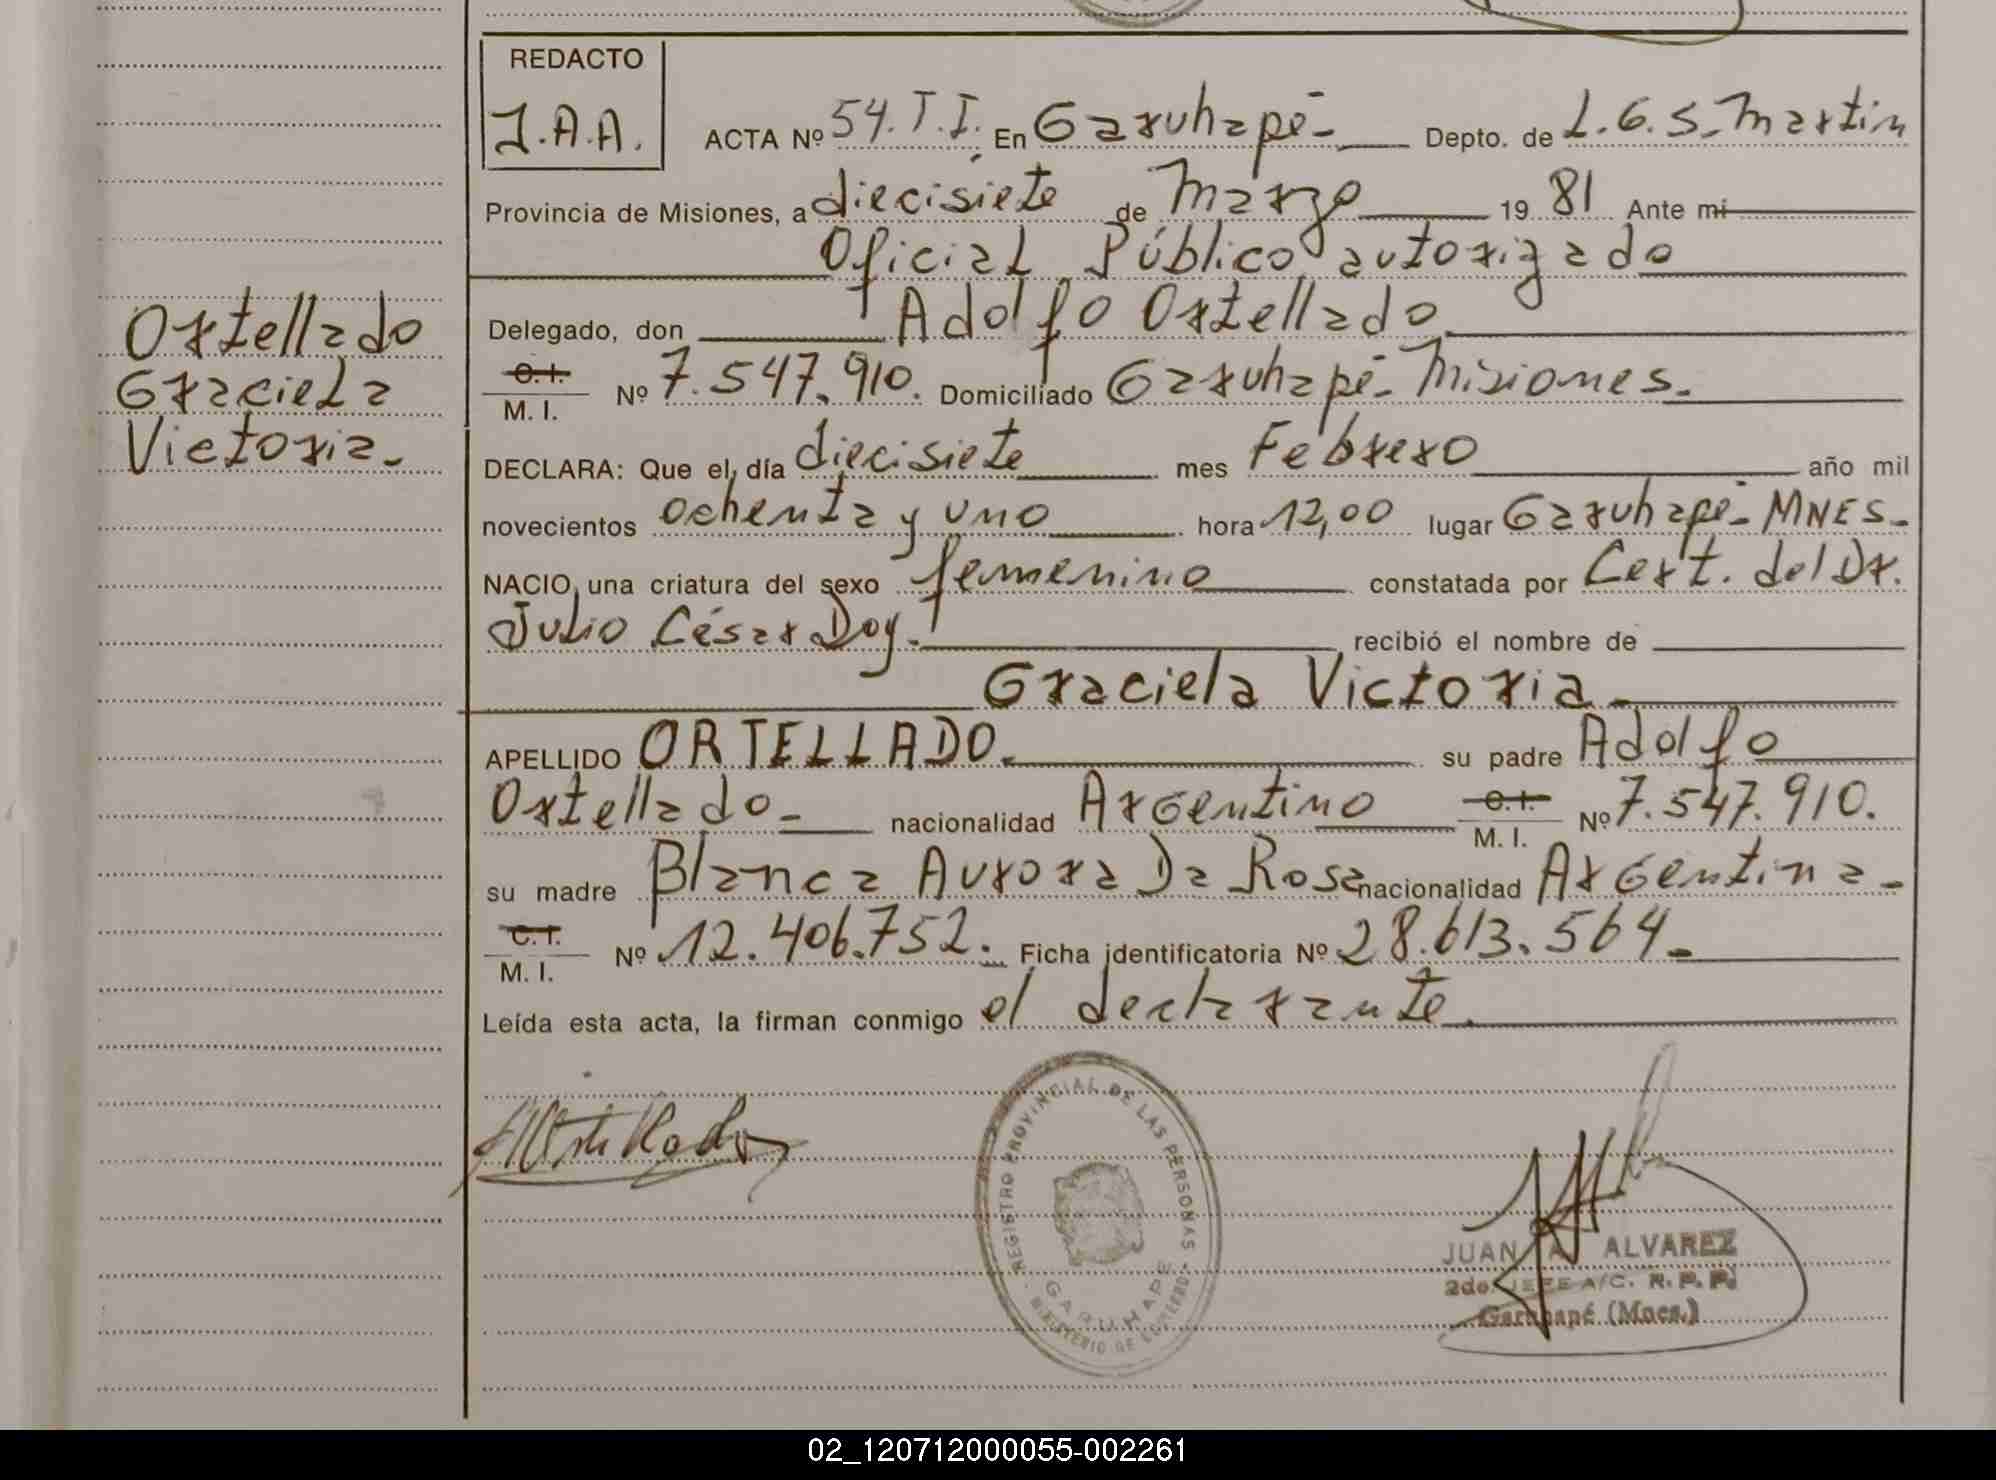 REDACTO
J.A.A.
ACTA Nº 54.T.I. En Garuhapé- Depto. de L.G.S. Martin
Provincia de Misiones, a diecisiete de Marzo 19 81 Ante mí
Oficial Público autorizado
Delegado, don Adolfo Ortellado
C.I.
M. I. Nº 7.547.910. Domiciliado Garuhapé- Misiones.-
DECLARA: Que el día diecisiete mes Febrero año mil
novecientos ochenta y uno hora 12,00 lugar Garuhapé- MNES.-
NACIO una criatura del sexo femenino constatada por Cert. del Dr.
Julio César Doy. recibió el nombre de
Graciela Victoria.-
APELLIDO ORTELLADO.- su padre Adolfo
Ortellado.- nacionalidad Argentino C.I.
M. I. Nº 7.547.910.
su madre Blanca Aurora Da Rosa nacionalidad Argentina.-
C.I.
M. I. Nº 12.406.752.- Ficha identificatoria Nº 28.613.564.-
Leída esta acta, la firman conmigo el declarante.
Ortellado
Graciela
Victoria.-
REGISTRO PROVINCIAL DE LAS PERSONAS
GARUHAPE
MINISTERIO DE GOBIERNO
JUAN A. ALVAREZ
2do. JEFE A/C. R. P. P.
Garuhapé (Mnes.)
02_120712000055-002261